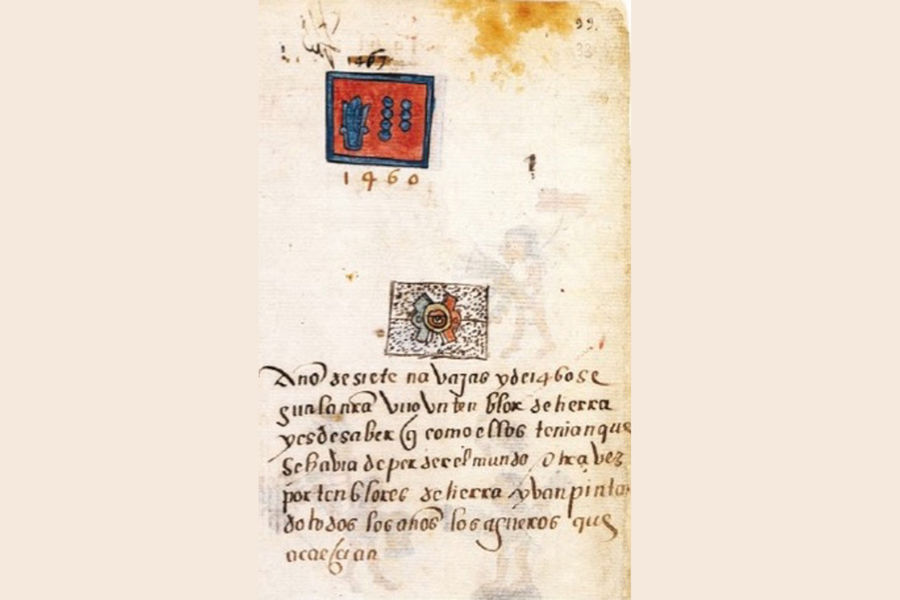 99.
33
1467
1460
Año de siete navajas y de 1460 se
gun la nrã vuo vn tenblor de tierra
y es de saber q̃ como ellos tenian que
se habia de perder el mundo otra vez
por tenblores de tierra yvan pinta
do todos los años los agueros que
acaescian